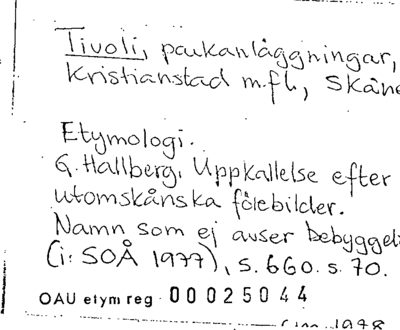 Tivoli, parkanläggningar,
Kristianstad m.fl., Skåne
Etymologi.
G. Hallberg, Uppkallelse efter
utomskånska förebilder.
Namn som ej avser bebyggel
(i: SOÅ 1977), s. 660. s. 70.
OAU etym reg 00025044